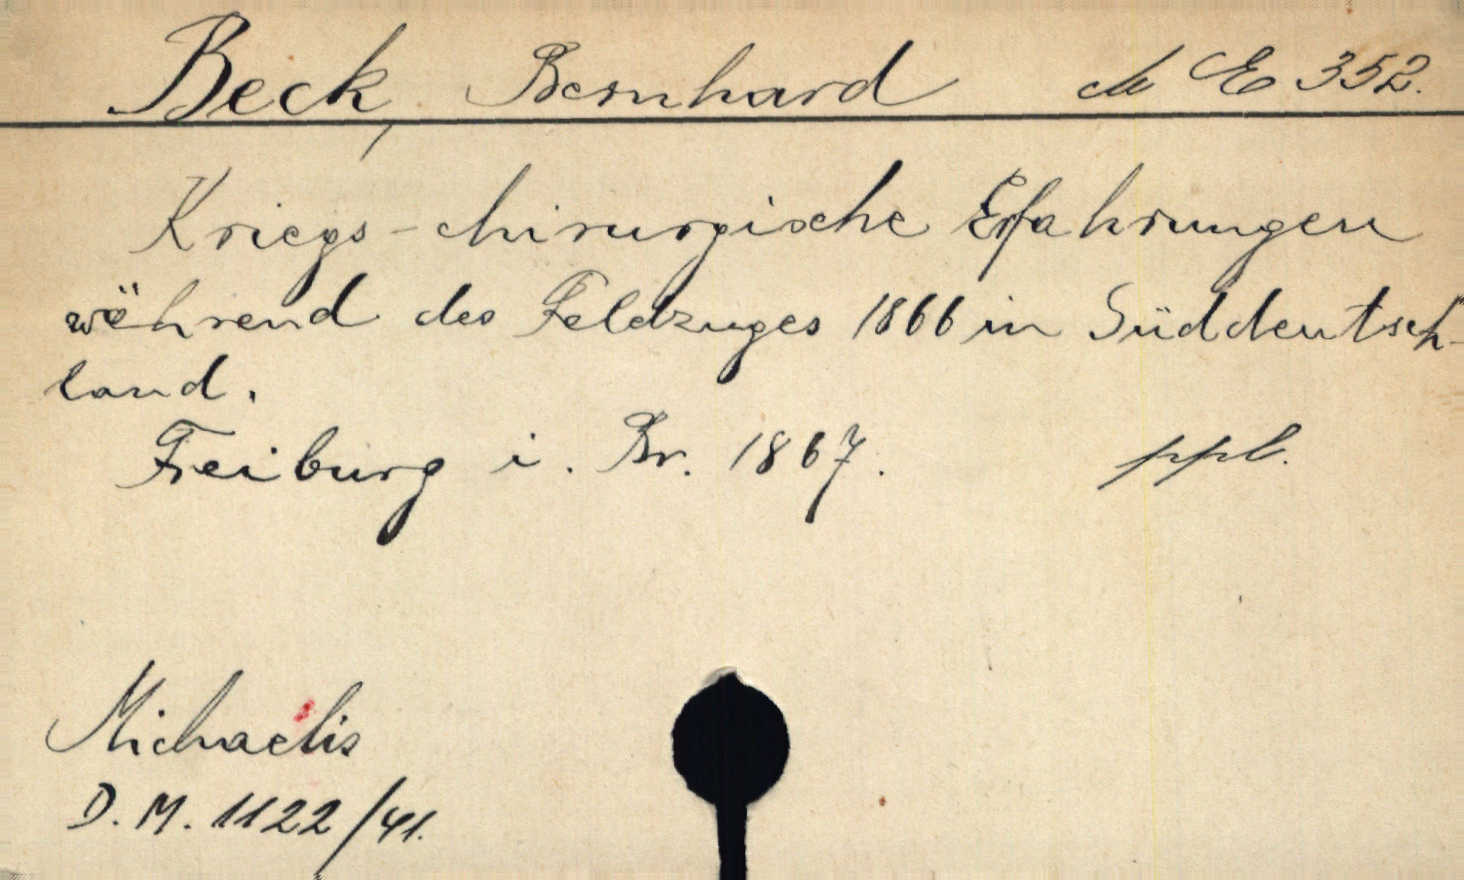 Beck, Bernhard M E 352.
Kriegs-chirurgische Erfahrungen
während des Feldzuges 1866 in Süddeutsch-
land.
Freiburg i. Br. 1867. ppb.
Michaelis
D. M. 1122/41.